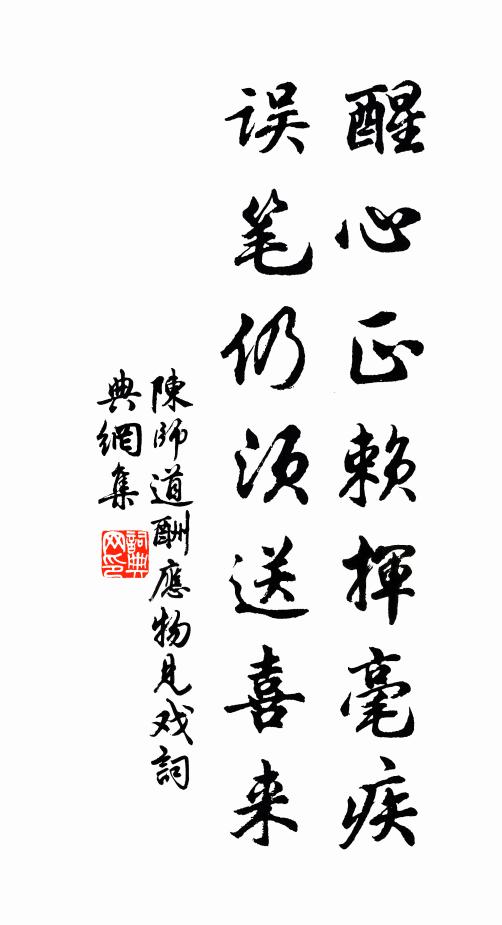 醒心正赖揮毫疾
误笔仍须送喜来
陳師道酬應物見戏詞
典網集
詞典网印